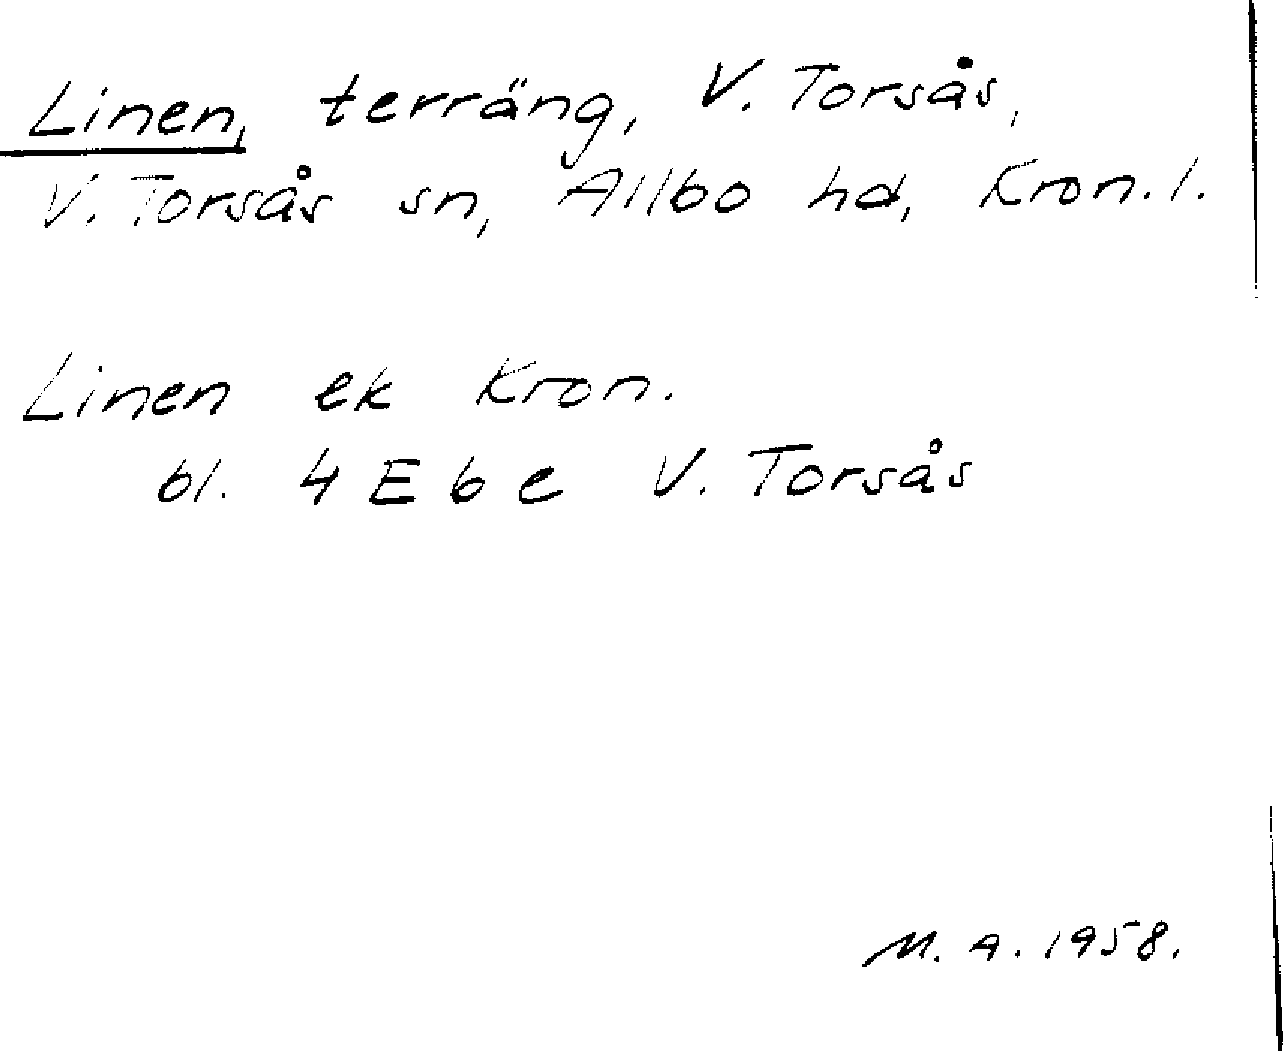 Linen, terräng, V. Torsås,
V. Torsås sn, Allbo hd, Kron. l.
Linen ek Kron.
bl. 4 E 6 e V. Torsås
M. A. 1958.